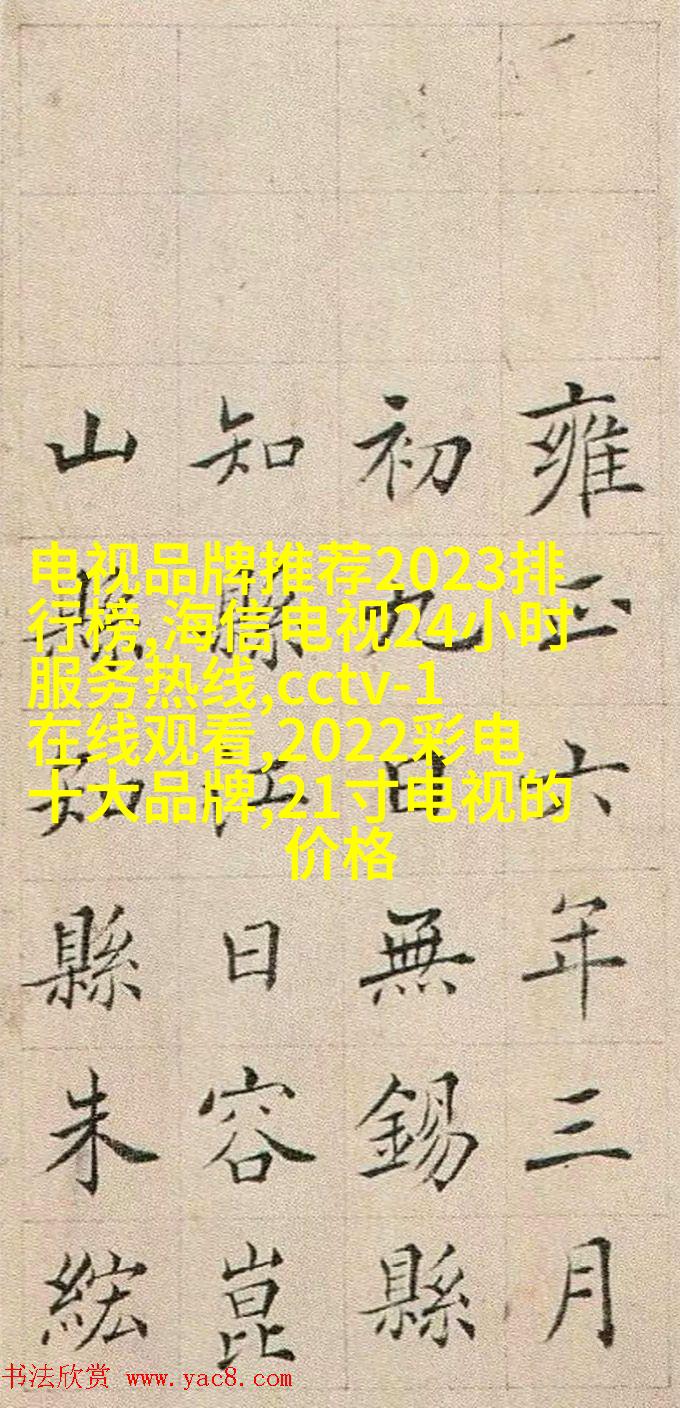 雍正六年三月
初九日無錫縣
知縣江日容崑
山縣知縣朱
电视品牌推荐2023排
行榜,海信电视24小时
服务热线,cctv-1
在线观看,2022彩电
十大品牌,21寸电视的
价格
书法欣赏 www.yac8.com